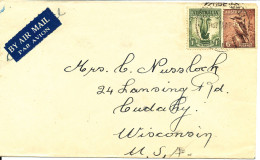 BY AIR MAIL
PAR AVION
AUSTRALIA
Mrs. C. Nussloch
24 Lansing Rd.
Cudahy,
Wisconsin
U.S.A.